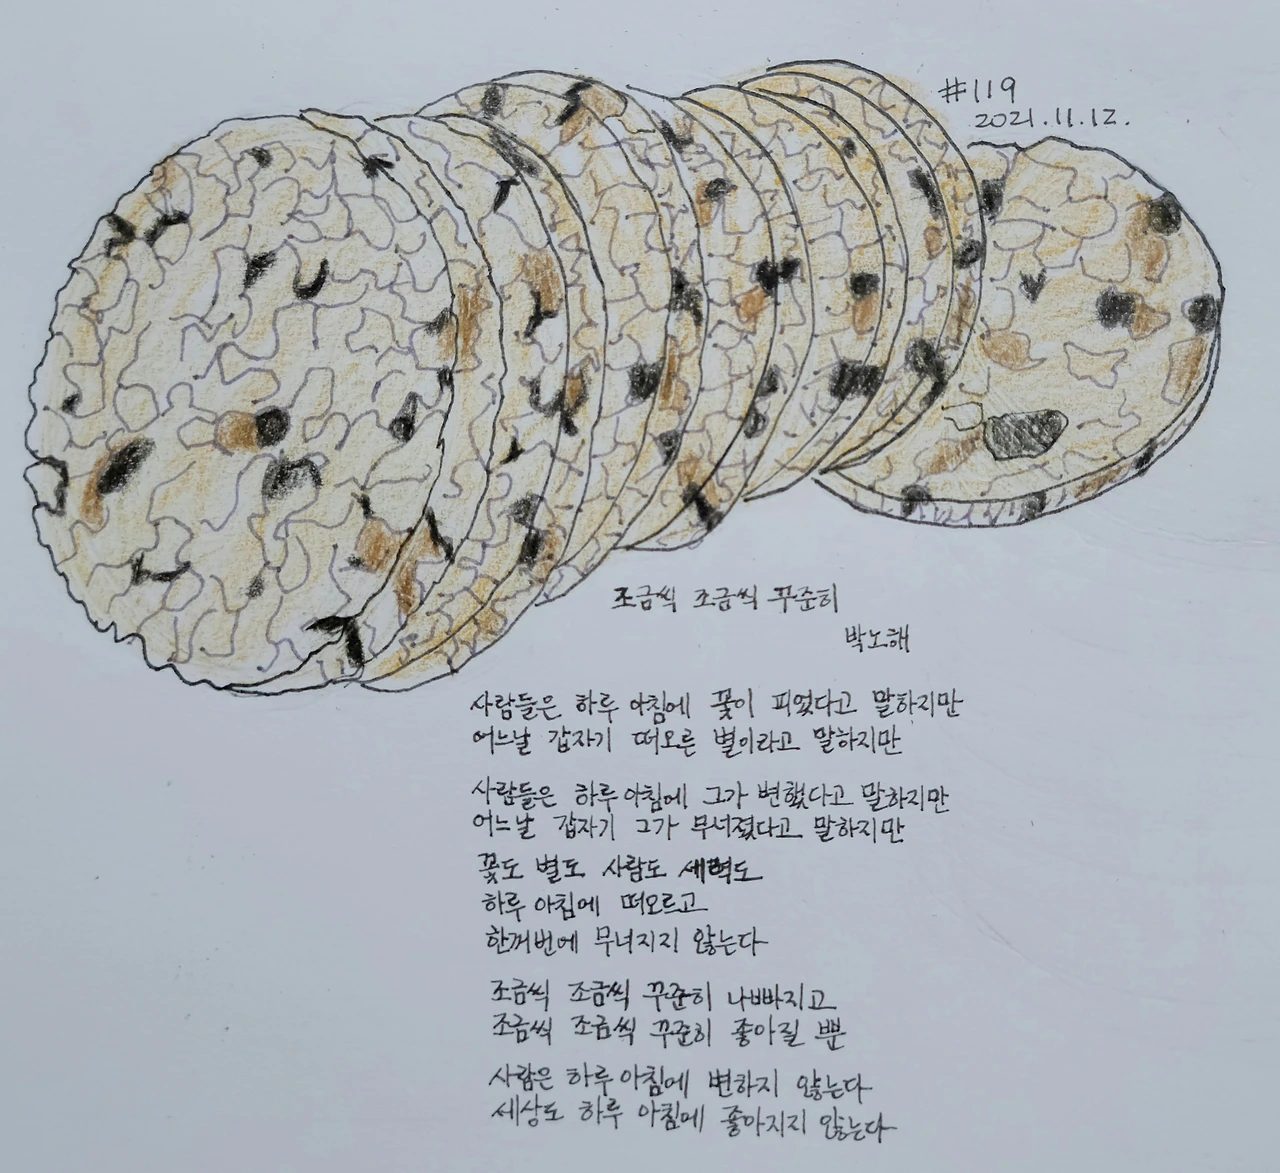 #119
2021.11.12.
조금씩 조금씩 꾸준히
박노해
사람들은 하루 아침에 꽃이 피었다고 말하지만
어느날 갑자기 떠오른 별이라고 말하지만
사람들은 하루 아침에 그가 변했다고 말하지만
어느날 갑자기 그가 무너졌다고 말하지만
꽃도 별도 사람도 세력도
하루 아침에 떠오르고
한꺼번에 무너지지 않는다
조금씩 조금씩 꾸준히 나빠지고
조금씩 조금씩 꾸준히 좋아질 뿐
사람은 하루 아침에 변하지 않는다
세상도 하루 아침에 좋아지지 않는다